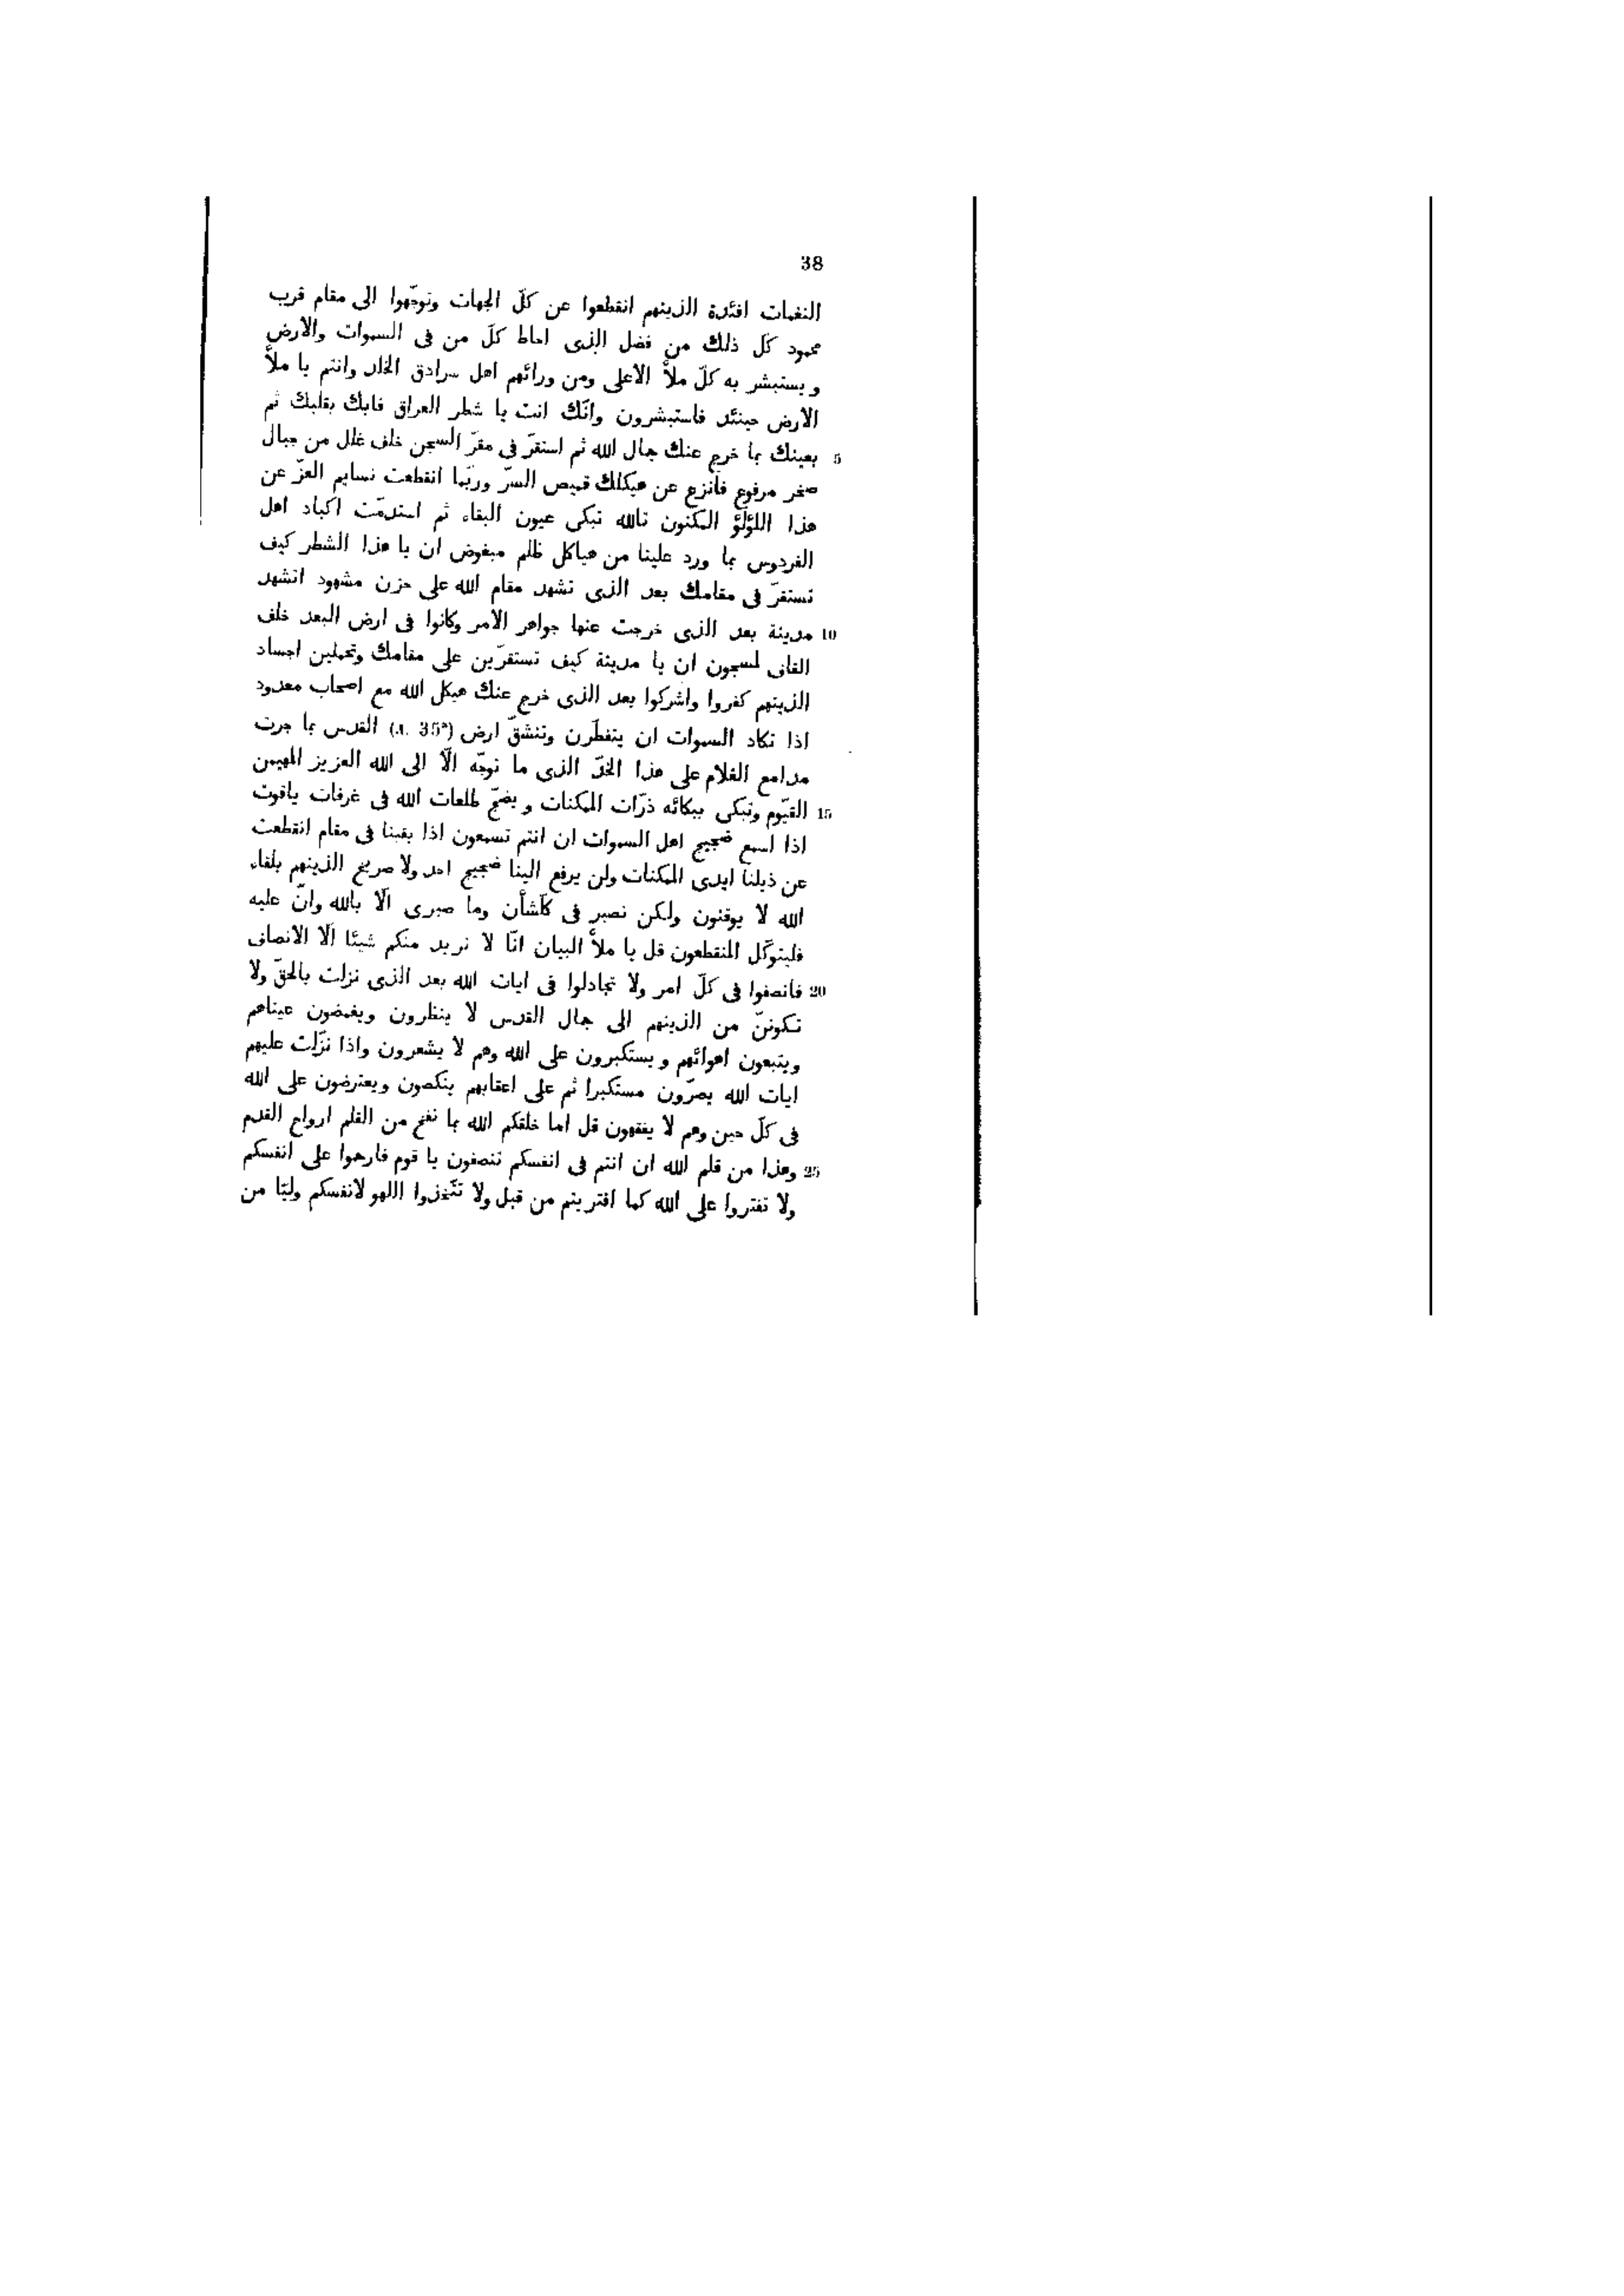 38
النغمات افئدة الذينهم انقطعوا عن كلّ الجهات وتوجّهوا الى مقام قرب
محمود كل ذلك من فضل الذى احاط كلّ من فى السموات والارض
ويستبشر به كلّ ملأ الاعلى ومن ورائهم اهل سرادق الخلد وانتم يا ملأ
الارض حينئد فاستبشرون وانّك انت يا شطر العراق فابك بقلبك ثم
5 بعينك بما خرج عنك جمال الله ثم استقرّ فى مقرّ السجن خلف غلل من جبال
صخر مرفوع فانزع عن هيكلك قميص السرّ وربّما انقطعت نسايم العزّ عن
هذا اللؤلؤ المكنون تالله تبكى عيون البقاء ثم استدمّت اكباد اهل
الفردوس بما ورد علينا من هياكل ظلم مبغوض ان يا هذا الشطر كيف
تستقرّ فى مقامك بعد الذى تشهد مقام الله على حزن مشهود اتشهد
10 مدينة بعد الذى خرجت عنها جواهر الامر وكانوا فى ارض البعد خلف
القاف لمسجون ان يا مدينة كيف تستقرّين على مقامك وتحملين اجساد
الذينهم كفروا واشركوا بعد الذى خرج عنك هيكل الله مع اصحاب معدود
اذا تكاد السموات ان يتفطّرن وتنشقّ ارض (л. 35ª) القدس بما جرت
مدامع الغلام على هذا الخدّ الذى ما توجّه الّا الى الله العزيز المهيمن
15 القيّوم وتبكى ببكائه ذرّات الممكنات ويضجّ طلعات الله فى غرفات ياقوت
اذا اسمع ضجيج اهل السموات ان انتم تسمعون اذا بقينا فى مقام انقطعت
عن ذيلنا ايدى الممكنات ولن يرفع الينا ضجيج احد ولا صريخ الذينهم بلقاء
الله لا يوقنون ولكن نصبر فى كلّشأن وما صبرى الّا بالله وانّ عليه
فليتوكّل المنقطعون قل يا ملأ البيان انّا لا نريد منكم شيئا الّا الانصاف
20 فانصفوا فى كلّ امر ولا تجادلوا فى ايات الله بعد الذى نزلت بالحقّ ولا
تكوننّ من الذينهم الى جمال القدس لا ينظرون ويغمضون عيناهم
ويتبعون اهوائهم ويستكبرون على الله وهم لا يشعرون واذا نزّلت عليهم
ايات الله يصرّون مستكبرا ثم على اعقابهم ينكصون ويعترضون على الله
فى كلّ حين وهم لا يفقهون قل اما خلقكم الله بما نفخ من القلم ارواح القدم
25 وهذا من قلم الله ان انتم فى انفسكم تنصفون يا قوم فارحموا على انفسكم
ولا تفتروا على الله كما افتريتم من قبل ولا تتّخذوا اللهو لانفسكم وليّا من